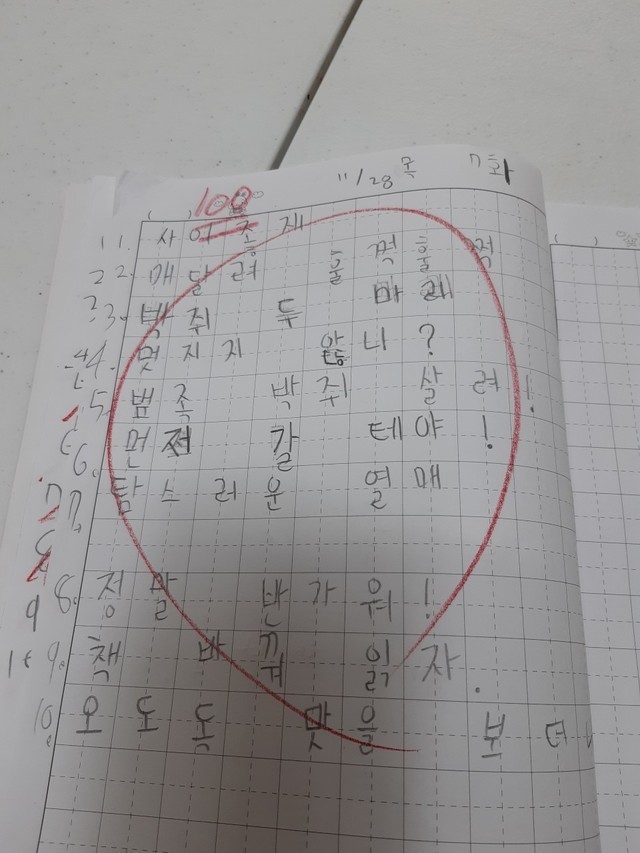 11/28 목 7화
( ) 100
1. 사 어 종 제
2. 매달려 훌쩍훌쩍
3. 박쥐 두 마리
4. 멋지지 않니?
5. 뱀족 박쥐 살려!
6. 먼저 갈 테야!
7. 탐스러운 열매
8. 정말 반가워!
9. 책 바꿔 읽자.
10. 오도독 맛을 보더니